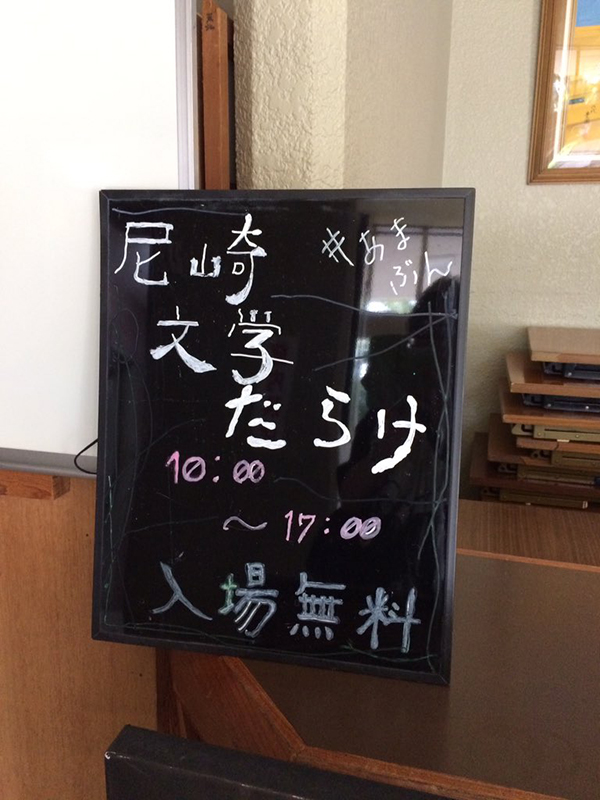 尼崎
#あま
ぶん
文学
だらけ
10:00
～17:00
入場無料